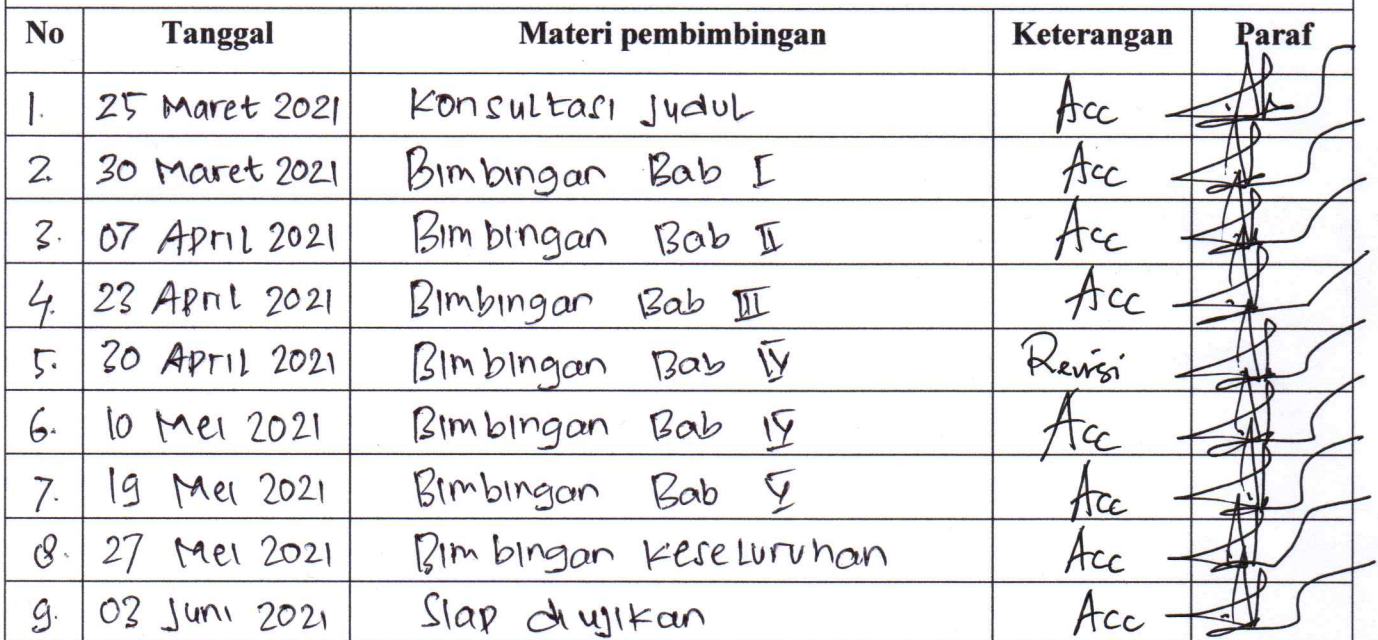 No Tanggal Materi pembimbingan Keterangan Paraf
1. 25 Maret 2021 Konsultasi Judul Acc
2. 30 Maret 2021 Bimbingan Bab I Acc
3. 07 April 2021 Bimbingan Bab II Acc
4. 23 April 2021 Bimbingan Bab III Acc
5. 30 April 2021 Bimbingan Bab IV Revisi
6. 10 Mei 2021 Bimbingan Bab IV Acc
7. 19 Mei 2021 Bimbingan Bab V Acc
8. 27 Mei 2021 Bimbingan Keseluruhan Acc
9. 03 Juni 2021 Siap diujikan Acc